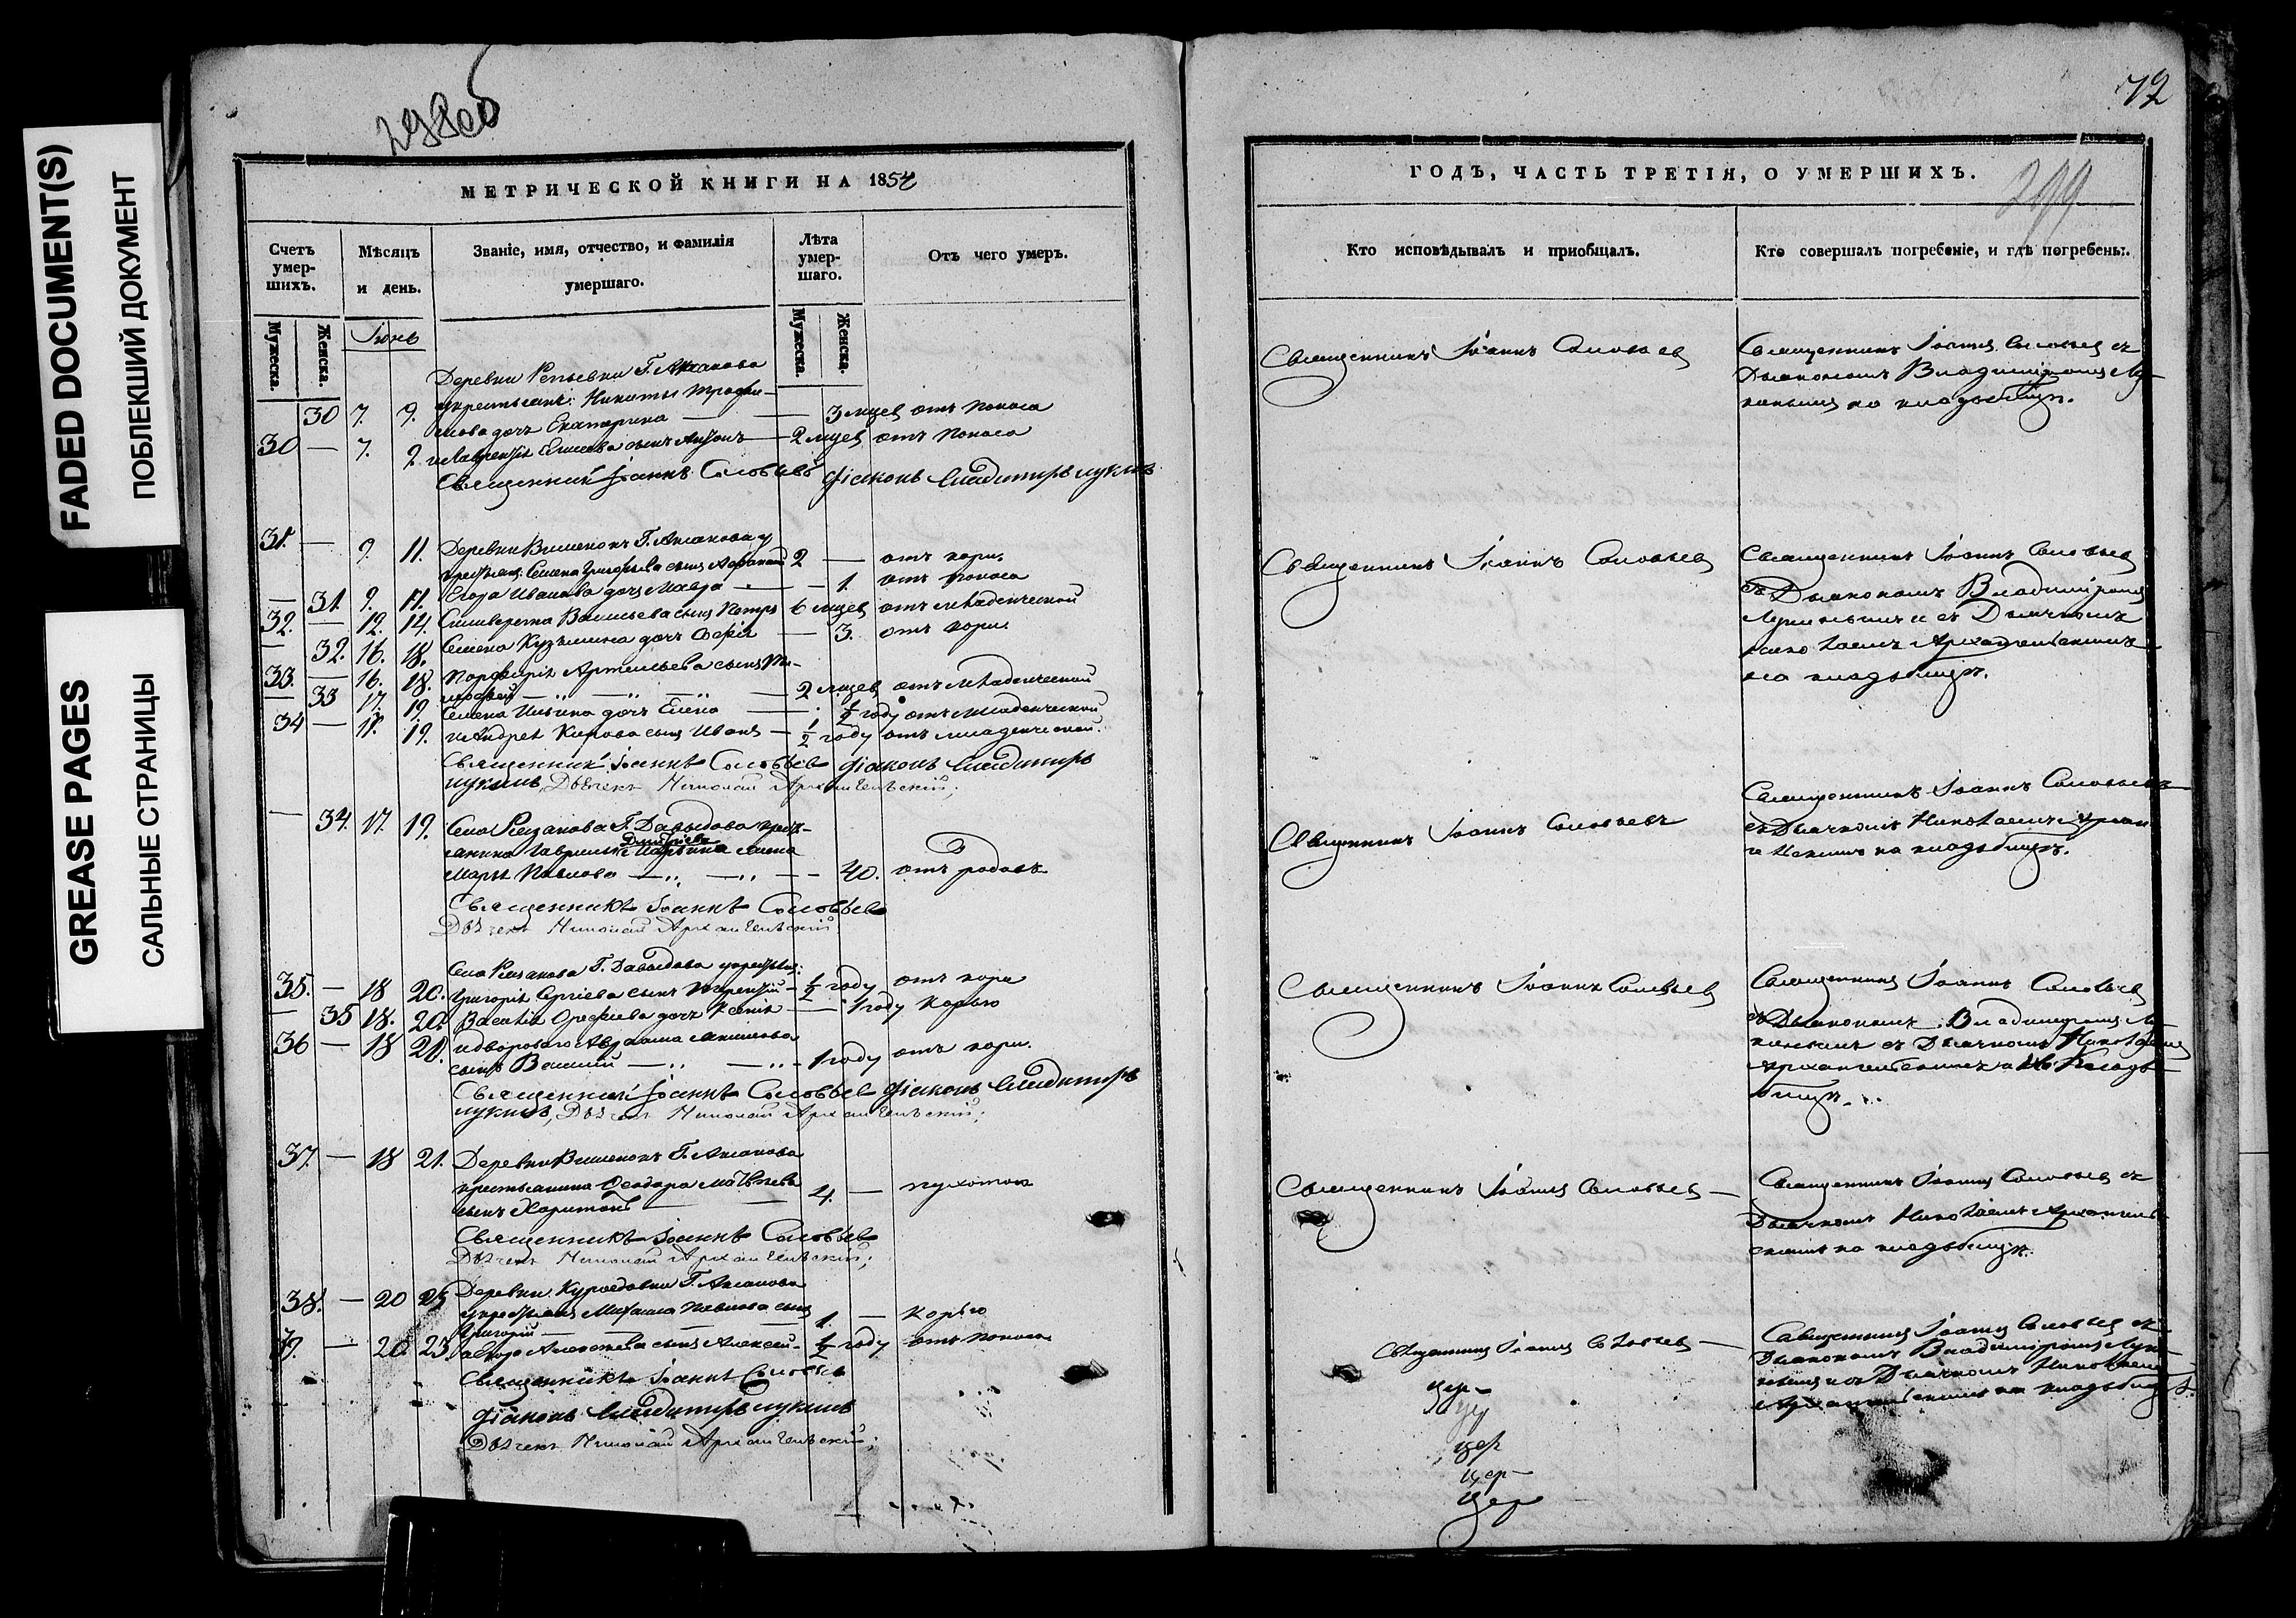 FADED DOCUMENT(S)
ПОБЛЕКШИЙ ДОКУМЕНТ
GREASE PAGES
САЛЬНЫЕ СТРАНИЦЫ
298об
МЕТРИЧЕСКОЙ КНИГИ НА 1854
Счетъ умер-шихъ.
Мѣсяцъ и день.
Званіе, имя, отчество, и фамилія умершаго.
Лѣта умер-шаго.
Отъ чего умеръ.
Мужеска. Женска. Мужеска. Женска.
Іюнь
Деревни Репьевки Г. Аксакова
крестьянъ: Никиты Трофи-
30 7. 9. мова дочь Екатерина — 3 мцев отъ поноса
30 — 7. 9. и Лаврентія сынъ Антонъ — 2 мцев отъ поноса
Священникъ Іоаннъ Соловьевъ Діаконъ Владимиръ Лукинъ
31. — 9. 11. Деревни Вишенокъ Г. Аксакова
крестьянъ: Семена Григорьева сынъ 2 — отъ кори.
— 31. 9. 11. Егора Иванова дочь Мавра — 1. отъ поноса
32. — 12. 14. Селиверста Васильева сынъ Петръ 6 мцев отъ младенческой
— 32. 16. 18. Семена Кузьмина дочь Софія — 3. отъ кори
33. — 16. 18. Порфирія Артемьева сынъ Ти-
мофей — 2 мцев отъ младенческой
— 33 17. 19. Семена Ильина дочь Елена — ½ году отъ младенческой
34 — 17. 19. и Андрея Кирова сынъ Иванъ — ½ году отъ младенческой.
Священникъ Іоаннъ Соловьевъ Діаконъ Владимиръ
Лукинъ, Дьячекъ Николай Архангельскій;
— 34. 17. 19. Села Резанова Г. Давыдова кресть-
Дмитріева
янина Гаврилы жена
Марья Павлова — 40. отъ родовъ
Священникъ Іоаннъ Соловьевъ
Дьячекъ Николай Архангельскій
Села Резанова Г. Давыдова крестьян:
35. — 18 20. Григорія Сергіева сынъ — ½ году отъ кори
— 35 18. 20. Василія Орефіева дочь Ксенія — 1 году корью
36 — 18 20. и двороваго Авраама
сынъ Василий — 1 году отъ кори.
Священникъ Іоаннъ Соловьевъ Діаконъ Владимиръ
Лукинъ, Дьячекъ Николай Архангельскій;
37. — 18 21. Деревни Вишенокъ Г. Аксакова
крестьянина Ѳеодора Матвѣева
сынъ Харитонъ — 4. —
Священникъ Іоаннъ Соловьевъ
Дьячекъ Николай Архангельскій;
Деревни Куроедовки Г. Аксакова
38. — 20 23 крестьянъ Михаила Павлова сынъ
Григорій — 1. — корью
39. — 20. 23. Алексеева сынъ Алексей — ½ году отъ поноса
Священникъ Іоаннъ Соловьевъ
Діаконъ Владимиръ Лукинъ
Дьячекъ Николай Архангельскій;
72
ГОДЪ, ЧАСТЬ ТРЕТІЯ, О УМЕРШИХЪ.
299
Кто исповѣдывалъ и пріобщалъ.
Кто совершалъ погребеніе, и гдѣ погребены.
Священникъ Іоаннъ Соловьев
Священникъ Іоаннъ Соловьев съ
Дьякономъ Владиміромъ Лу-
кинымъ на кладбищѣ.
Священникъ Іоаннъ Соловьев
Священникъ Іоаннъ Соловьев
съ Дьякономъ Владиміромъ
Лукинымъ и съ Дьячкомъ
Николаемъ Архангельскимъ
на кладбищѣ.
Священникъ Іоаннъ Соловьевъ
Священникъ Іоаннъ Соловьевъ
съ Дьячкомъ Николаемъ Архан-
гельскимъ на кладбищѣ.
Священникъ Іоаннъ Соловьев
Священникъ Іоаннъ Соловьев
съ Дьякономъ Владиміромъ Лу-
кинымъ съ Дьячкомъ Николаемъ
Архангельскимъ на Кладъ-
бищѣ.
Священникъ Іоаннъ Соловьев —
Священникъ Іоаннъ Соловьев съ
Дьячкомъ Николаемъ Архангель-
скимъ на кладбищѣ.
Священникъ Іоаннъ Соловьев —
Священникъ Іоаннъ Соловьев съ
Дьякономъ Владиміромъ Луки-
нымъ и съ Дьячкомъ Николаемъ
Архангельскимъ на кладбищѣ.
цер-
цу
цер
цер-
цер